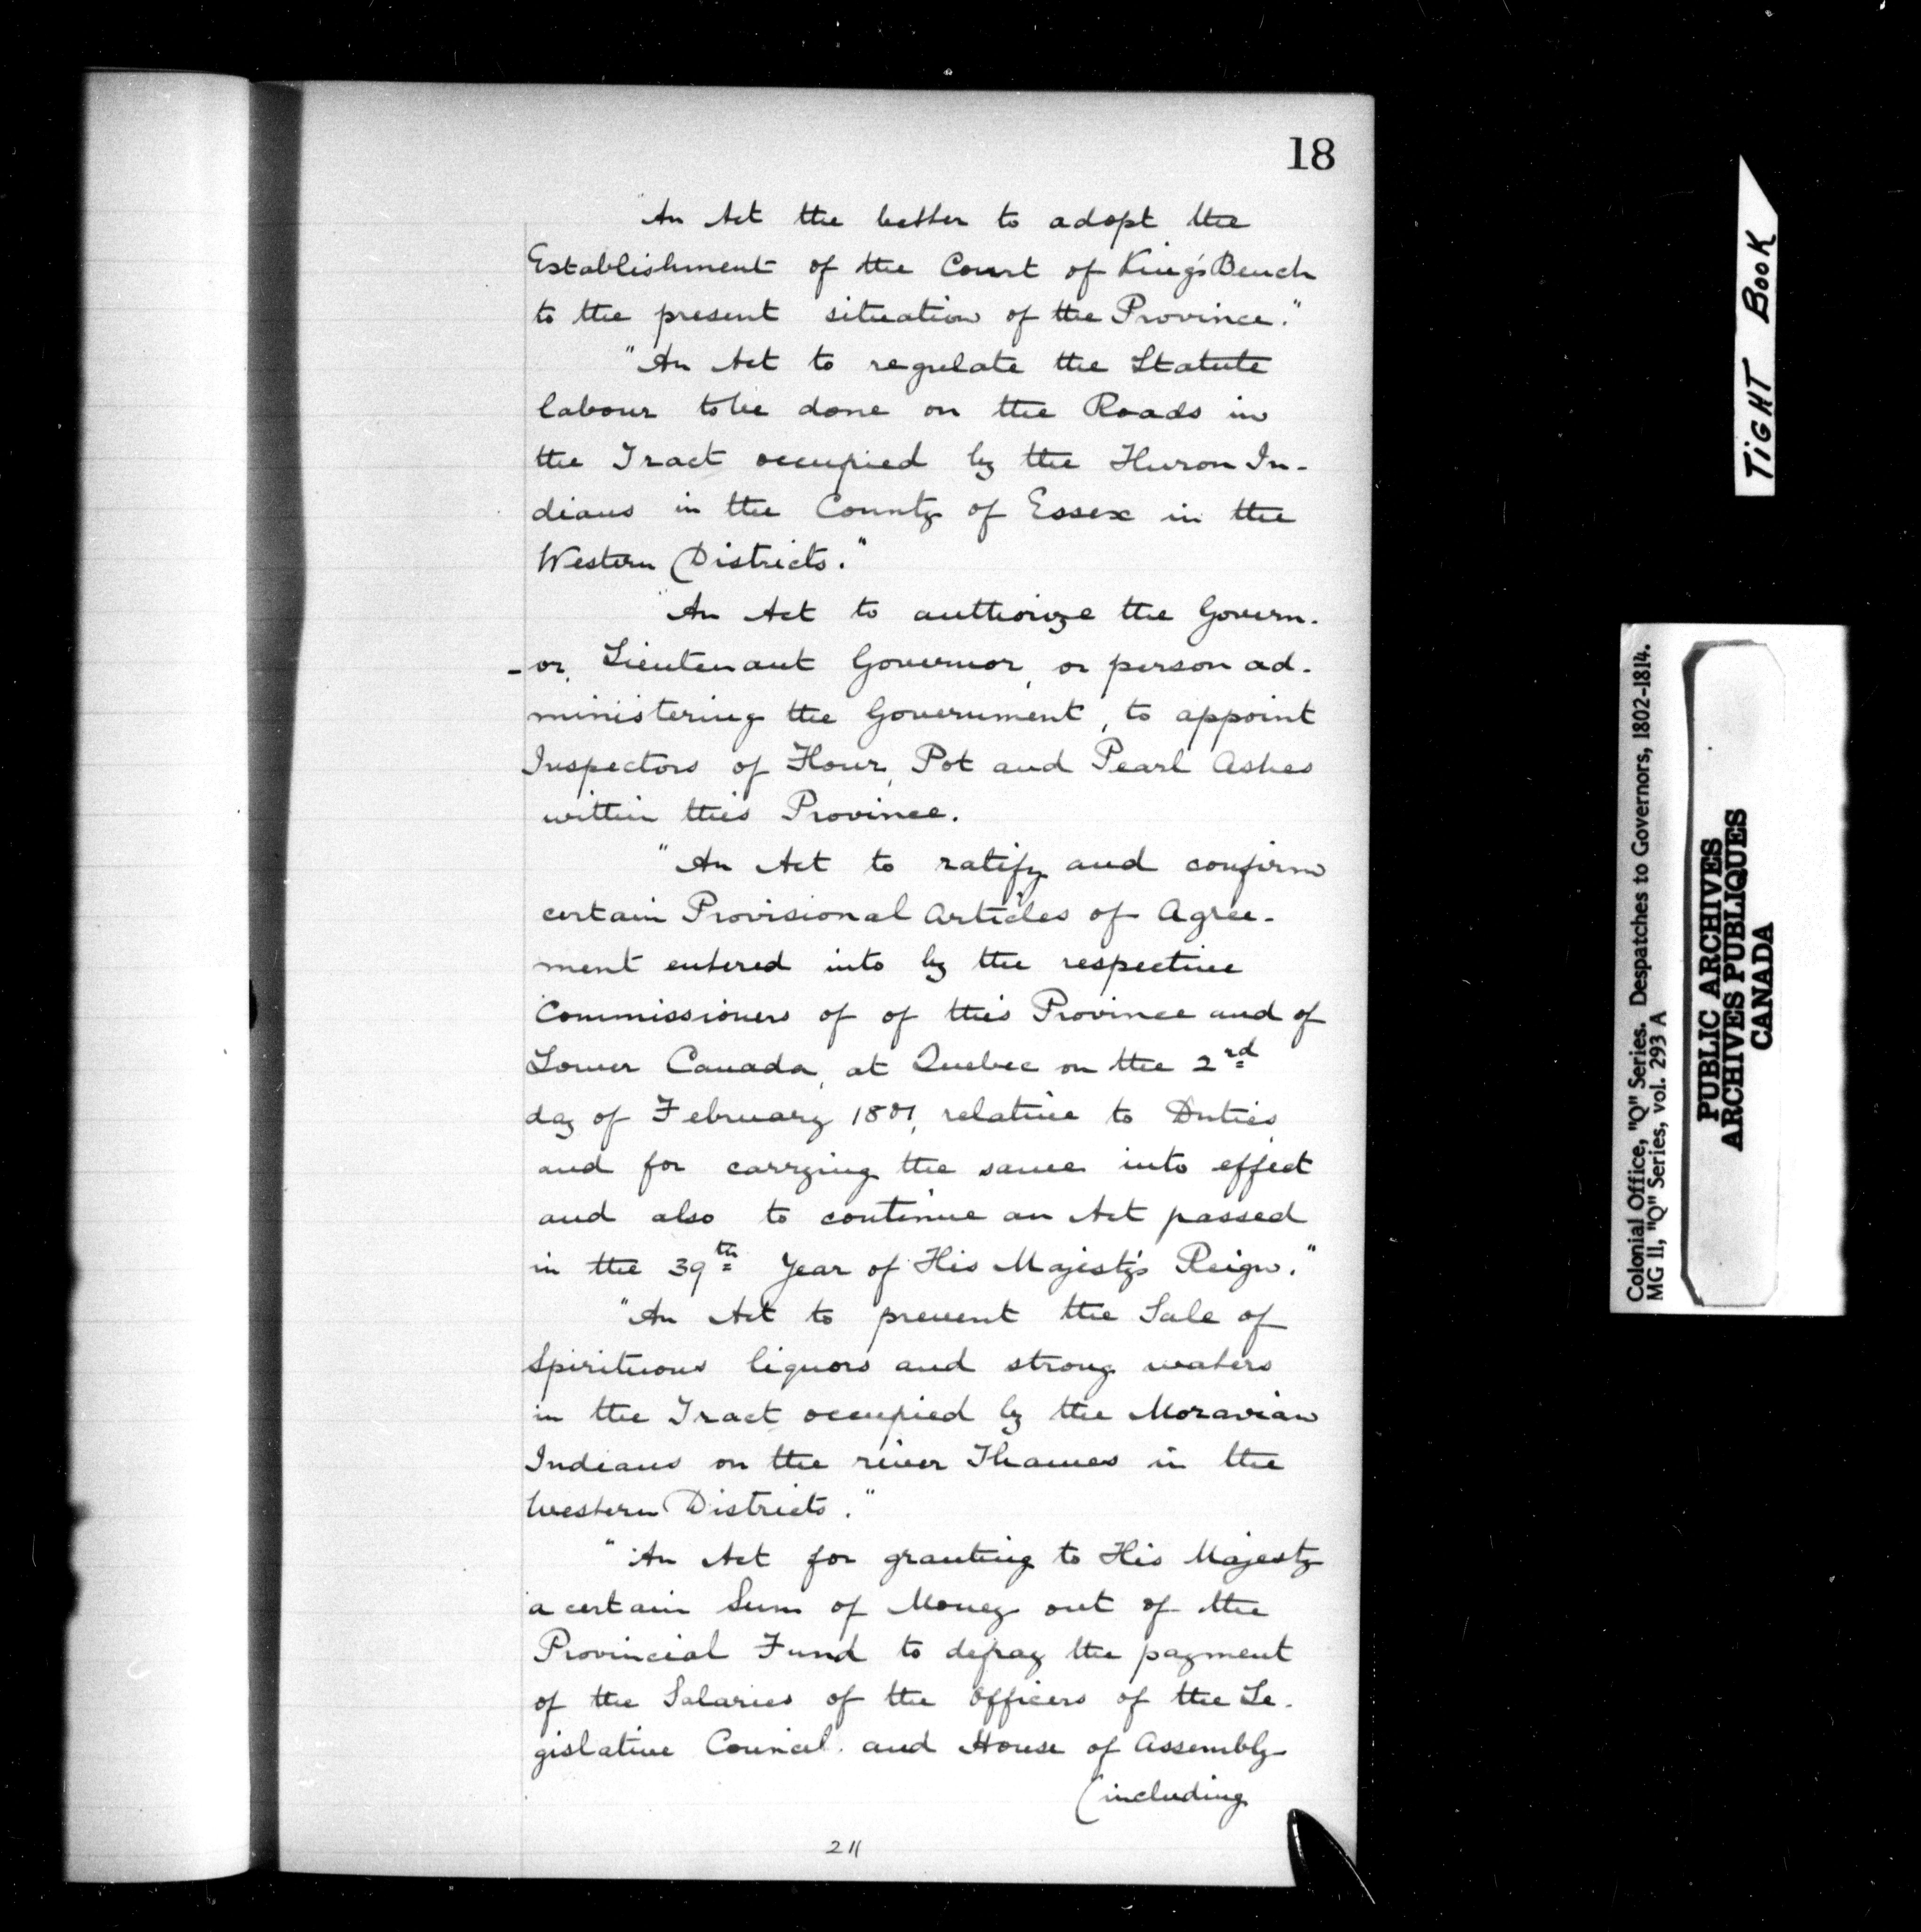 18
"An Act the better to adopt the
Establishment of the Court of King's Bench
to the present situation of the Province."
"An Act to regulate the Statute
labour to be done on the Roads in
the Tract occupied by the Huron In-
dians in the County of Essex in the
Western Districts."
"An Act to authorize the Govern-
-or, Lieutenant Governor, or person ad-
ministering the Government, to appoint
Inspectors of Flour, Pot and Pearl Ashes
within this Province.
"An Act to ratify and confirm
certain Provisional Articles of Agree-
ment entered into by the respective
Commissioners of of this Province and of
Lower Canada, at Quebec on the 2rd
day of February 1801, relative to Duties
and for carrying the same into effect
and also to continue an Act passed
in the 39th Year of His Majesty's Reign."
"An Act to prevent the Sale of
Spirituous liquors and strong waters
in the Tract occupied by the Moravian
Indians on the river Thames in the
Western Districts."
"An Act for granting to His Majesty
a certain Sum of Money out of the
Provincial Fund to defray the payment
of the Salaries of the Officers of the Le-
gislative Council and House of Assembly
(including
211
TIGHT BOOK
Colonial Office, "Q" Series. Despatches to Governors, 1802-1814.
MG 11, "Q" Series, vol. 293 A
PUBLIC ARCHIVES
ARCHIVES PUBLIQUES
CANADA